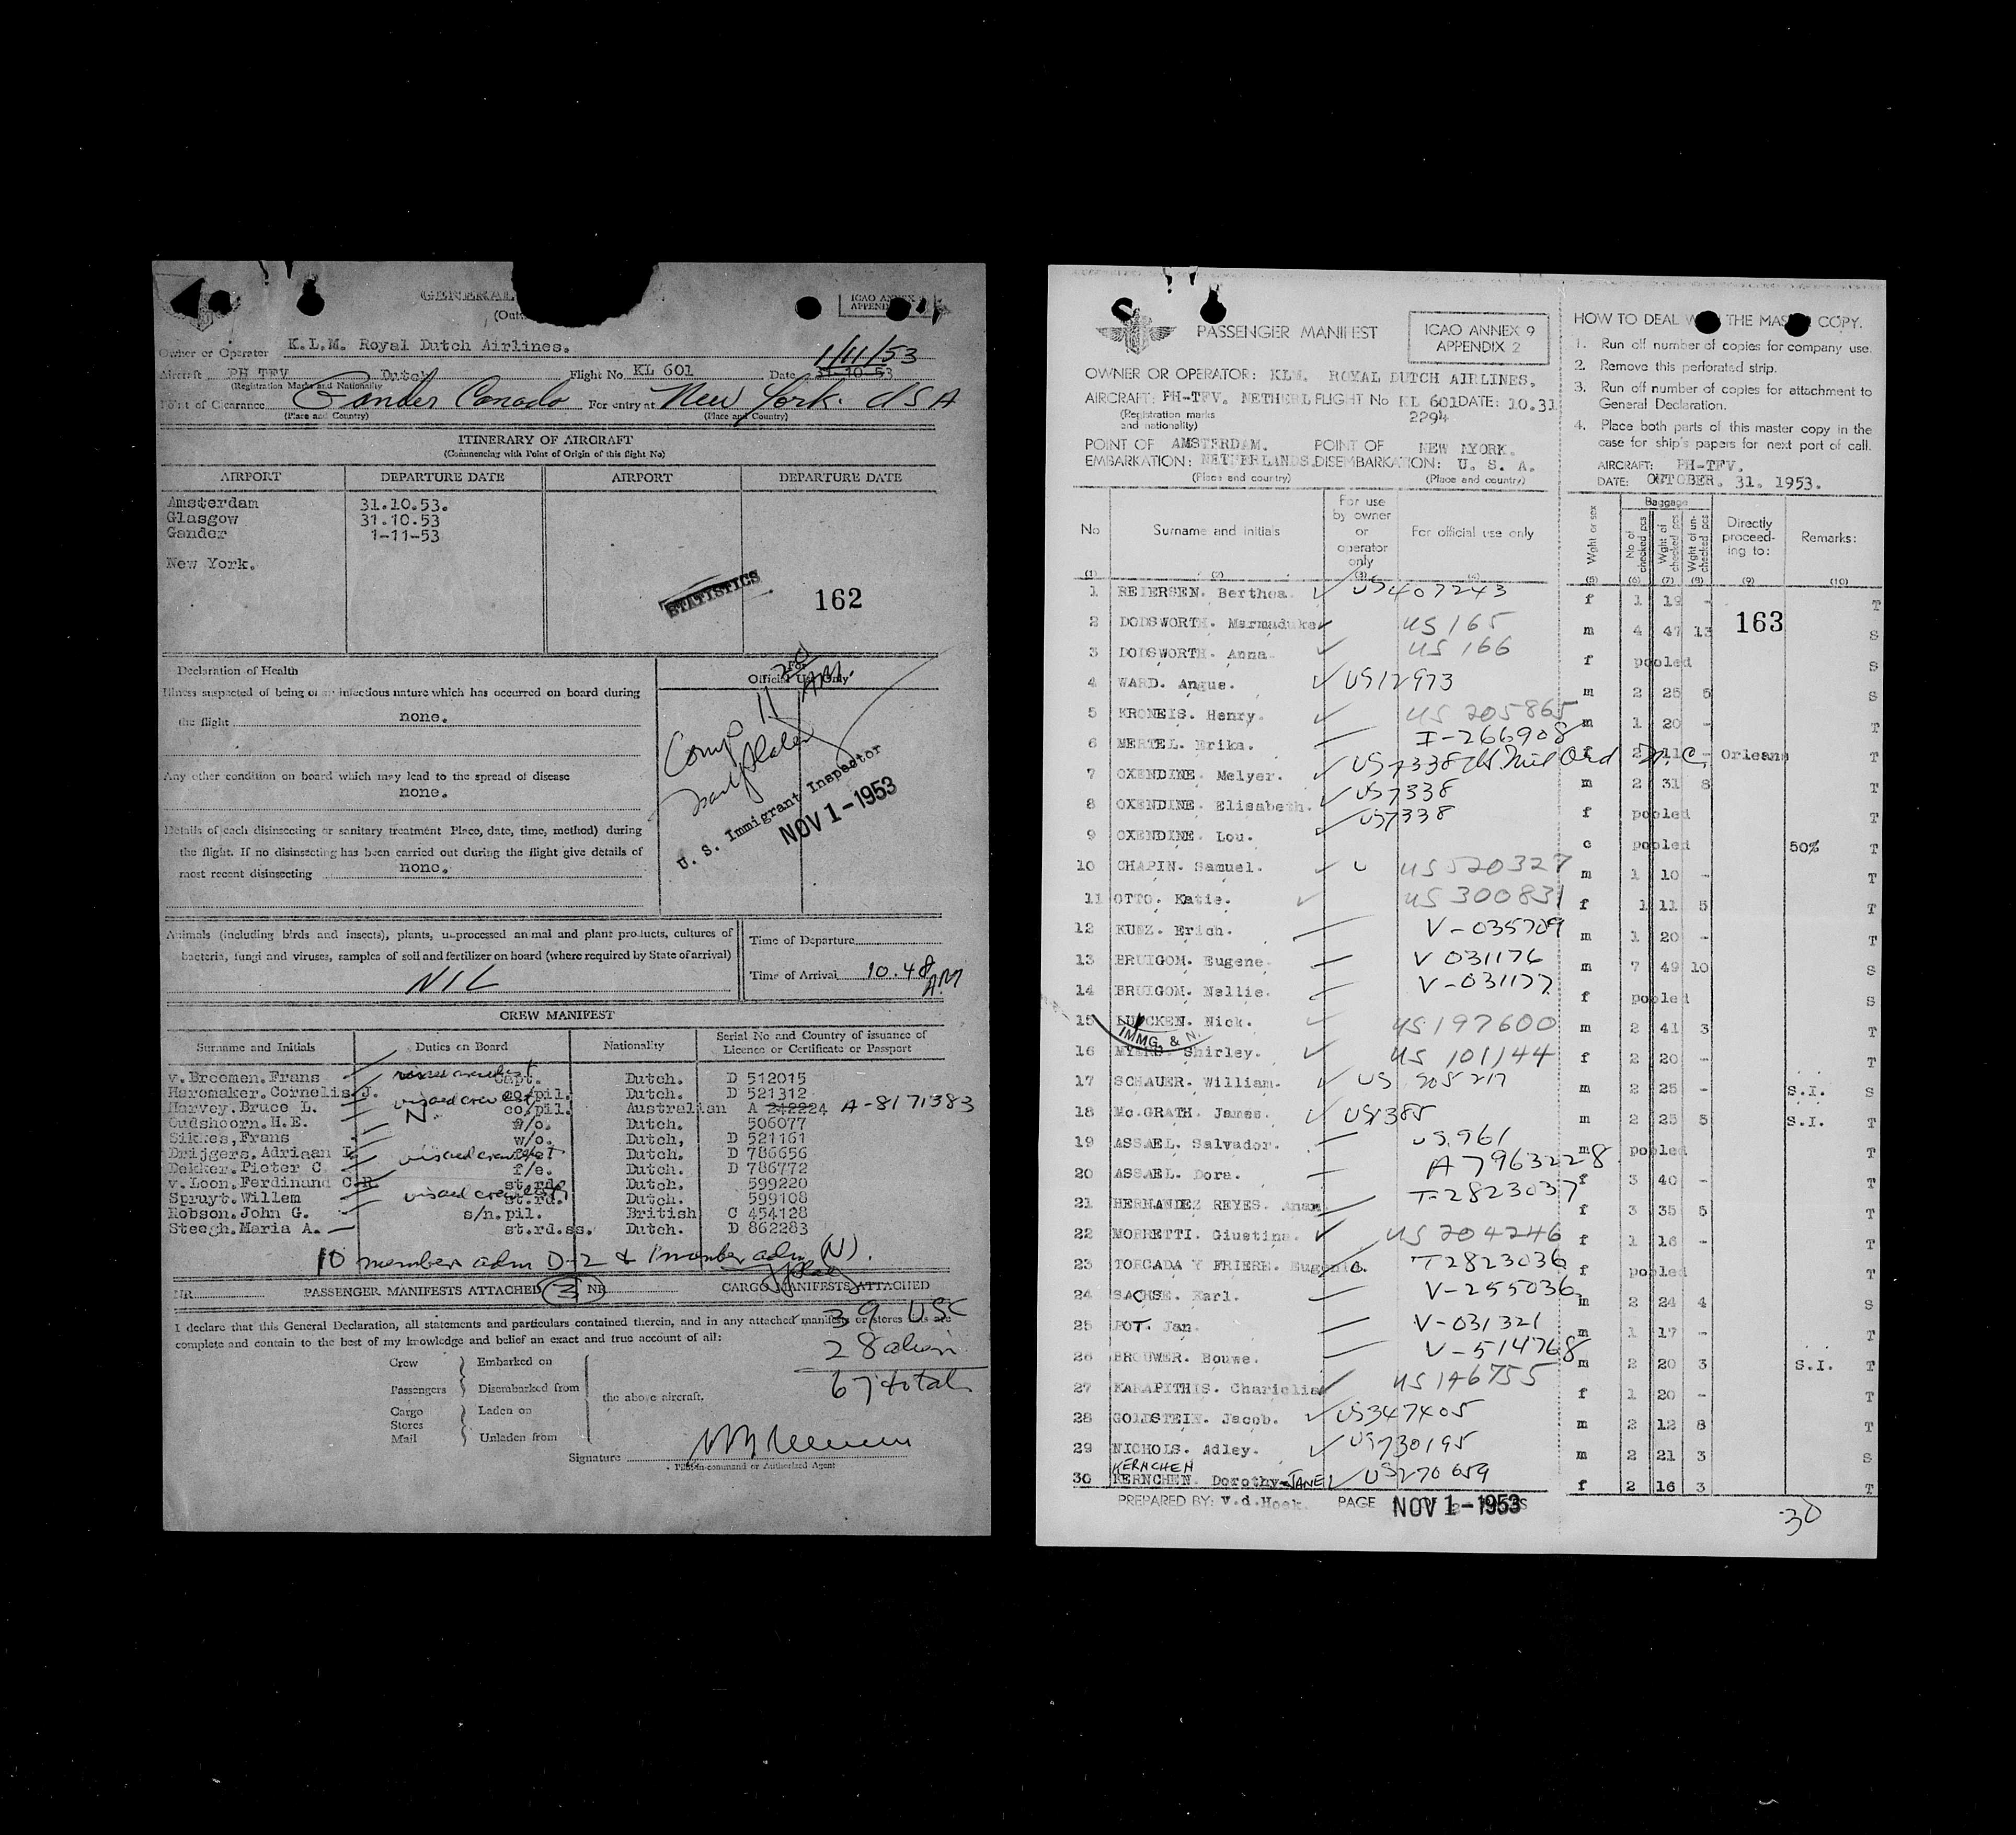 GENERAL
ICAO ANNEX
K.L.M. Royal Dutch Airlines.
Owner or Operator
1/11/53
Aircraft PH TFV Dutch Flight No KL 601 Date 31-10-53
(Registration Marks and Nationality
Point of Clearance Gander Canada For entry at New York. USA
(Place and Country) (Place and Country)
ITINERARY OF AIRCRAFT
(Commencing with Point of Origin of this flight No)
AIRPORT DEPARTURE DATE AIRPORT DEPARTURE DATE
Amsterdam 31.10.53.
Glasgow 31.10.53
Gander 1-11-53
New York.
STATISTICS
162
Declaration of Health
For Official Use Only
Illness suspected of being of an infectious nature which has occurred on board during
the flight none.
Any other condition on board which may lead to the spread of disease
none.
Details of each disinsecting or sanitary treatment Place, date, time, method) during
the flight. If no disinsecting has been carried out during the flight give details of
most recent disinsecting none.
Comp 11 20 AM.
U. S. Immigrant Inspector
NOV 1-1953
Animals (including birds and insects), plants, unprocessed animal and plant products, cultures of
bacteria, fungi and viruses, samples of soil and fertilizer on board (where required by State of arrival)
NIL
Time of Departure
Time of Arrival 10.48 AM
CREW MANIFEST
Surname and Initials Duties on Board Nationality Serial No and Country of issuance of Licence or Certificate or Passport
v.Broemen.Frans Capt. Dutch. D 512015
Haremaker.Cornelis J. co/pil. Dutch. D 521312
Harvey.Bruce L. N co.pil. Australian A 242224 A-8171383
Oudshoorn.H.E. Dutch. 506077
Sikkes,Frans w/o. Dutch, D 521161
Drijgers.Adriaan L. visaed crew list Dutch. D 786656
Dekker.Pieter C. f/e. Dutch. D 786772
v.Loon.Ferdinand C.R. st.rd. Dutch. 599220
Spruyt.Willem visaed crew list st.rd. Dutch. 599108
Robson.John G. s/n.pil. British C 454128
Steegh.Maria A. st.rd.ss. Dutch. D 862283
10 members adm D-2 & 1 member adm (N).
NR PASSENGER MANIFESTS ATTACHED 3 NR CARGO MANIFESTS ATTACHED
39 USC
I declare that this General Declaration, all statements and particulars contained therein, and in any attached manifests or stores lists are
complete and contain to the best of my knowledge and belief an exact and true account of all:
28 alien
67 total
Crew Embarked on
Passengers Disembarked from the above aircraft.
Cargo Laden on
Stores
Mail Unladen from
Signature
Pilot-in-command or Authorized Agent
PASSENGER MANIFEST
ICAO ANNEX 9
APPENDIX 2
OWNER OR OPERATOR: KLM. ROYAL DUTCH AIRLINES.
AIRCRAFT: PH-TFV. NETHERL FLIGHT No KL 601 DATE: 10.31
(Registration marks and nationality) 2294
POINT OF EMBARKATION: AMSTERDAM. NETHERLANDS. POINT OF DISEMBARKATION: NEW NYORK. U. S. A.
(Place and country) (Place and country)
HOW TO DEAL WITH THE MASTER COPY.
1. Run off number of copies for company use.
2. Remove this perforated strip.
3. Run off number of copies for attachment to General Declaration.
4. Place both parts of this master copy in the case for ship's papers for next port of call.
AIRCRAFT: PH-TFV.
DATE: OCTOBER. 31. 1953.
No Surname and initials For use by owner or operator only For official use only Wght or sex Baggage No of checked pcs Wght of checked pcs Wght of un-checked pcs Directly proceed-ing to: Remarks:
(1) (2) (3) (4) (5) (6) (7) (8) (9) (10)
163
1 REIERSEN. Berthea. US407243 f 1 19 - T
2 DODSWORTH. Marmaduke US 165 m 4 47 13 S
3 DODSWORTH. Anna. US 166 f pooled S
4 WARD. Angus. US12973 m 2 25 5 S
5 KRONEIS. Henry. US 205865 m 1 20 - T
6 MERTEL. Erika. I-266908 f 2 11 - Orleans T
7 OXENDINE. Melyer. US7338 m 2 31 8 T
8 OXENDINE. Elisabeth. US7338 f pooled T
9 OXENDINE. Lou. US7338 c pooled 50% T
10 CHAPIN. Samuel. US 520327 m 1 10 - T
11 OTTO. Katie. US 300831 f 1 11 5 T
12 KUNZ. Erich. V-035709 m 1 20 - T
13 BRUIGOM. Eugene. V 031176 m 7 49 10 S
14 BRUIGOM. Nellie. V-031177 f pooled S
15 LUECKEN. Nick. US197600 m 2 41 3 T
IMMG. & N.
16 MYERS Shirley. US 101144 f 2 20 - T
17 SCHAUER. William. US 205217 m 2 25 - S.I. S
18 Mc.GRATH. James. US1385 m 2 25 5 S.I. T
19 ASSAEL. Salvador. US 961 m pooled T
20 ASSAEL. Dora. A 7963228 f 3 40 - T
21 HERNANDEZ REYES. Anam T-2823037 f 3 35 5 T
22 MORRETTI. Giustina. US 204246 f 1 16 - T
23 TORCADA Y FRIERE. Eugenia. T2823036 f pooled T
24 SACHSE. Karl. V-255036 m 2 24 4 S
25 POT. Jan. V-031321 m 1 17 - T
26 BROUWER. Bouwe. V-514768 m 2 20 3 S.I. T
27 KARAPITHIS. Chariclia US 146755 f 1 20 - T
28 GOLDSTEIN. Jacob. US347405 m 2 12 8 T
29 NICHOLS. Adley. US730195 m 2 21 3 S
KERNCHEN
30 KERNCHEN. Dorothy-JANE US270659 f 2 16 3 T
PREPARED BY: v.d.Hoek. PAGE NOV 1-1953
30